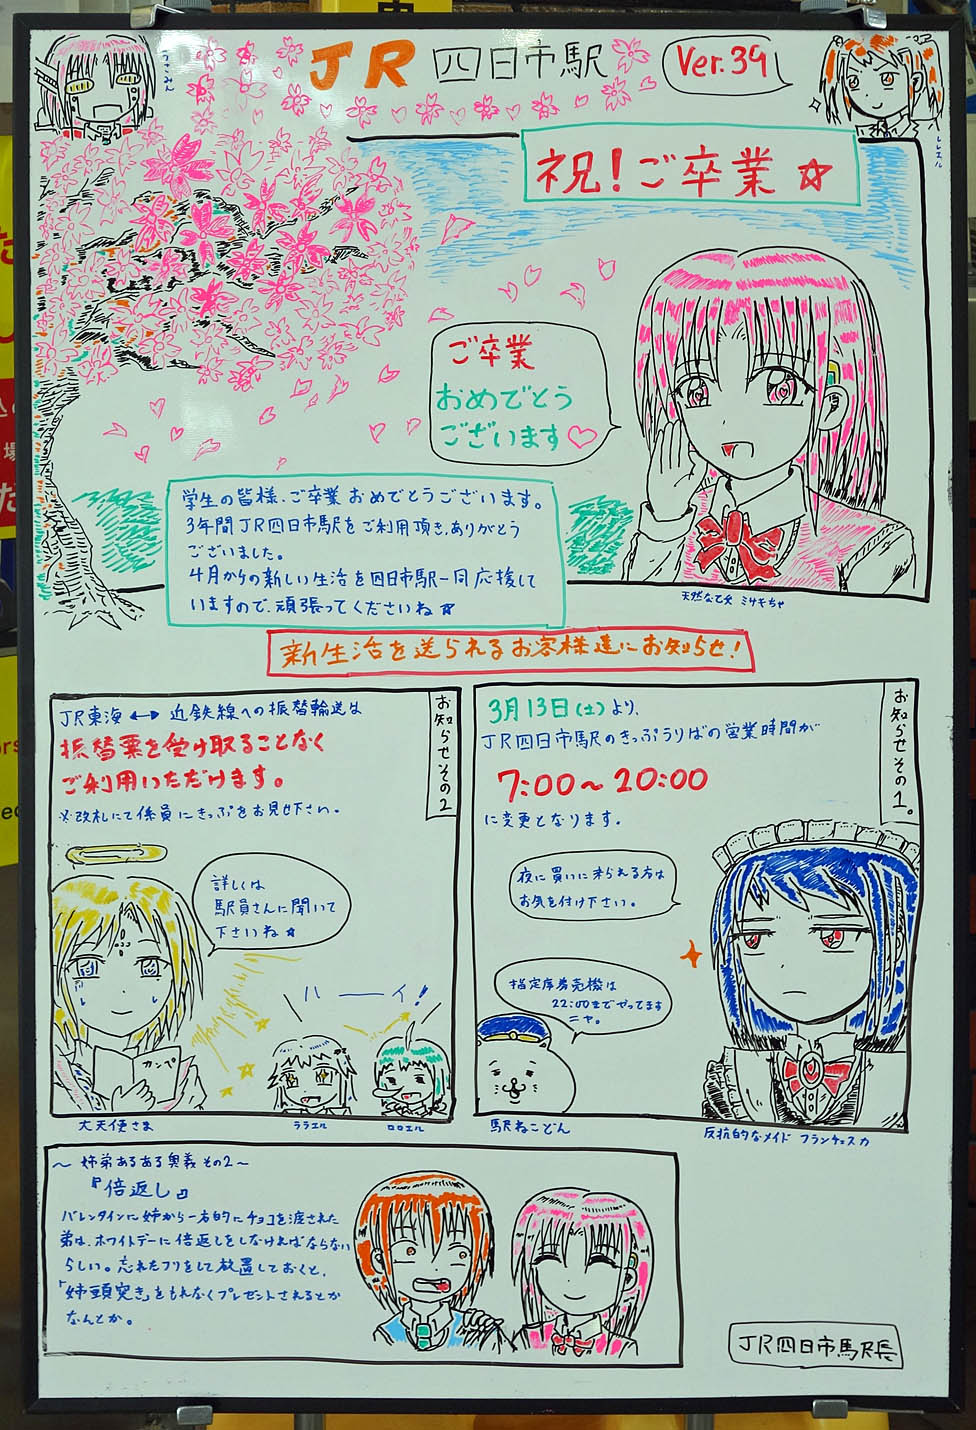 JR四日市駅
Ver.39
祝！ご卒業☆
ご卒業
おめでとう
ございます♡
学生の皆様、ご卒業おめでとうございます。
3年間JR四日市駅をご利用頂き、ありがとう
ございました。
4月からの新しい生活を四日市駅一同応援して
いますので、頑張ってくださいね☆
天然な乙女 ミサキちゃ
新生活を送られるお客様達にお知らせ！
お知らせその1。
3月13日(土)より、
JR四日市駅のきっぷうりばの営業時間が
7:00～20:00
に変更となります。
夜に買いに来られる方は
お気を付け下さい。
指定席券売機は
22:00までやってます
ニャ。
駅ねこどん
反抗的なメイド フランチェスカ
お知らせその2
JR東海↔近鉄線への振替輸送は
振替票を受け取ることなく
ご利用いただけます。
※改札にて係員にきっぷをお見せ下さい。
詳しくは
駅員さんに聞いて
下さいね☆
カンペ
ハーイ！
大天使さま
ララエル
ロロエル
～姉弟あるある奥義その2～
『倍返し』
バレンタインに姉から一方的にチョコを渡された
弟は、ホワイトデーに倍返しをしなければならない
らしい。忘れたフリをして放置しておくと、
「姉頭突き」をもれなくプレゼントされるとか
なんとか。
JR四日市駅長